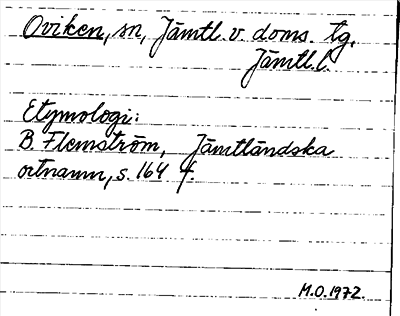 Oviken, sn, Jämtl. v. doms. tg,
Jämtl. l.
Etymologi:
B. Flemström, Jämtländska
ortnamn, s. 164 f.
M.O. 1972.